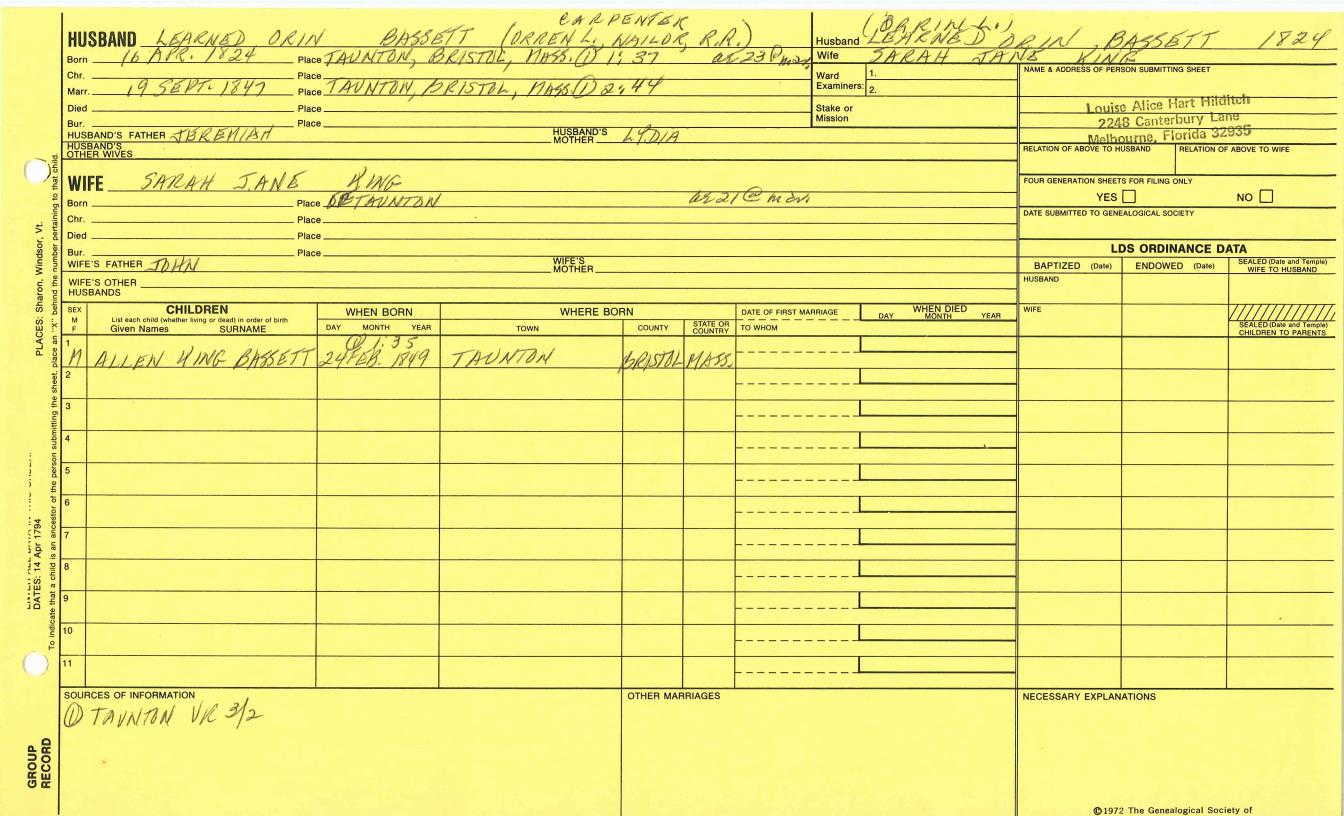 CARPENTER
HUSBAND LEARNED ORIN BASSETT (ORREN L., NAILOR, R.R.)
Born 16 APR. 1824 Place TAUNTON, BRISTOL, MASS. ① 1:37 ae 23 @ mar.
Chr. Place
Marr. 19 SEPT. 1847 Place TAUNTON, BRISTOL, MASS ① 2:44
Died Place
Bur. Place
HUSBAND'S FATHER JEREMIAH HUSBAND'S MOTHER LYDIA
HUSBAND'S OTHER WIVES
(ORRIN L.)
Husband LEARNED ORIN BASSETT 1824
Wife SARAH JANE KING
Ward Examiners: 1.
2.
Stake or Mission
NAME & ADDRESS OF PERSON SUBMITTING SHEET
Louise Alice Hart Hilditch
2248 Canterbury Lane
Melbourne, Florida 32935
RELATION OF ABOVE TO HUSBAND RELATION OF ABOVE TO WIFE
FOUR GENERATION SHEETS FOR FILING ONLY
YES NO
DATE SUBMITTED TO GENEALOGICAL SOCIETY
WIFE SARAH JANE KING
Born Place OF TAUNTON ae 21 @ mar.
Chr. Place
Died Place
Bur. Place
WIFE'S FATHER JOHN WIFE'S MOTHER
WIFE'S OTHER HUSBANDS
LDS ORDINANCE DATA
BAPTIZED (Date) ENDOWED (Date) SEALED (Date and Temple) WIFE TO HUSBAND
HUSBAND
WIFE
SEALED (Date and Temple) CHILDREN TO PARENTS
SEX M F
CHILDREN
List each child (whether living or dead) in order of birth
Given Names SURNAME
WHEN BORN
DAY MONTH YEAR
WHERE BORN
TOWN COUNTY STATE OR COUNTRY
DATE OF FIRST MARRIAGE
TO WHOM
WHEN DIED
DAY MONTH YEAR
① 1:35
1 M ALLEN KING BASSETT 24 FEB. 1849 TAUNTON BRISTOL MASS.
2
3
4
5
6
7
8
9
10
11
SOURCES OF INFORMATION
① TAUNTON VR 3/2
OTHER MARRIAGES
NECESSARY EXPLANATIONS
©1972 The Genealogical Society of
PLACES: Sharon, Windsor, Vt.
DATES: 14 Apr 1794
To indicate that a child is an ancestor of the person submitting the sheet, place an "X" behind the number pertaining to that child.
GROUP RECORD